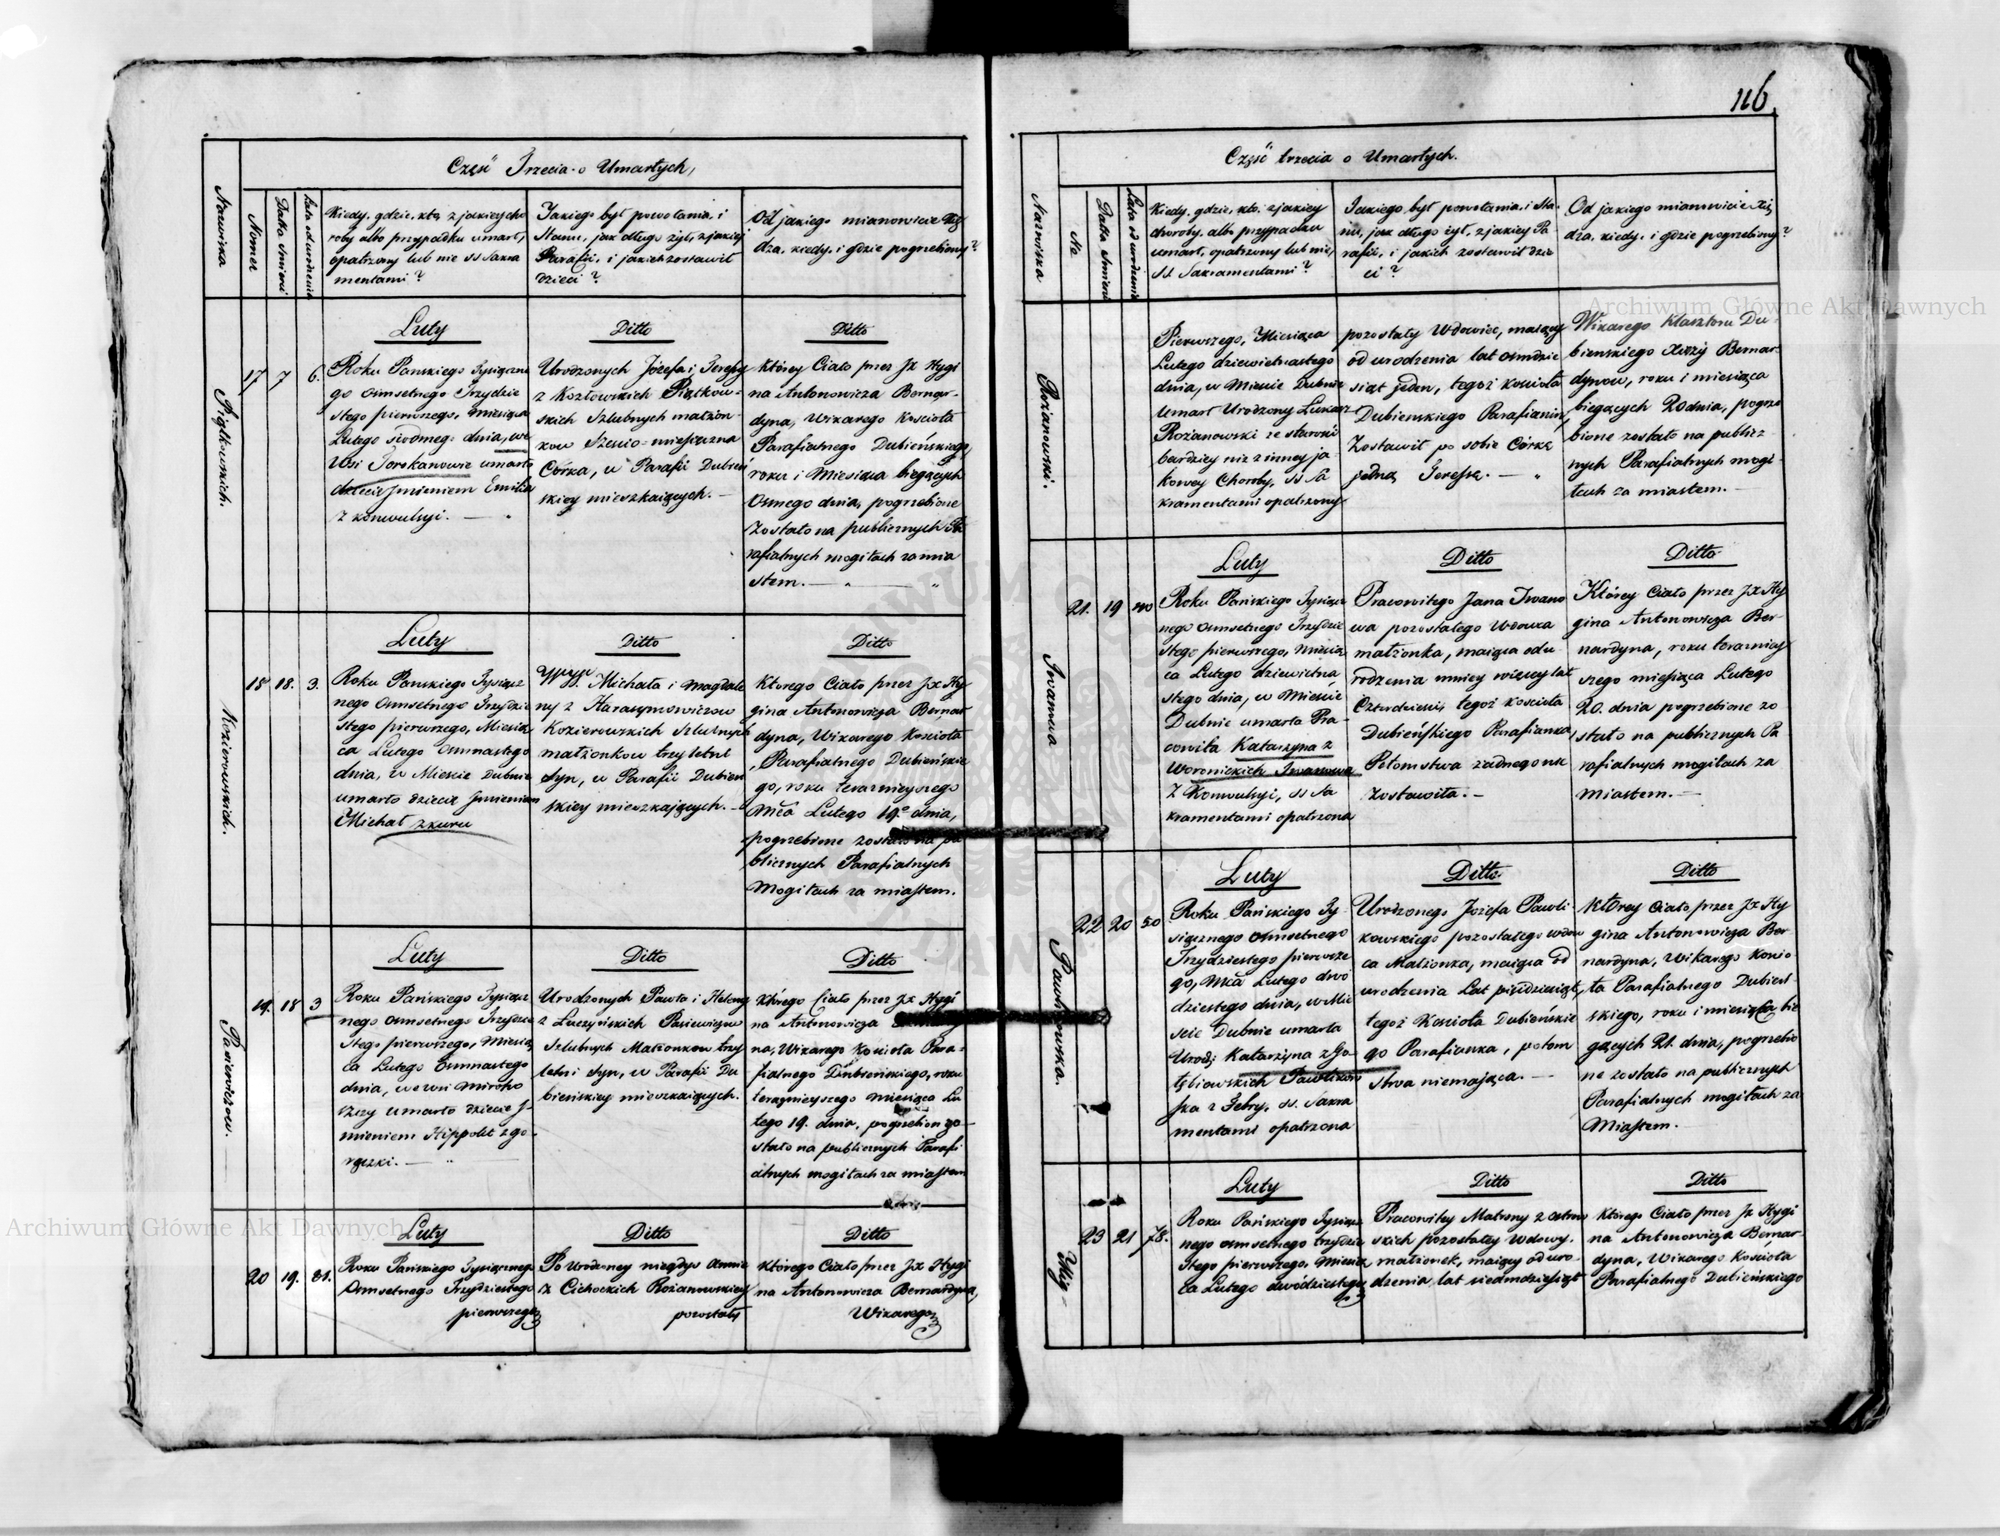 116
Część Trzecia o Umarłych,
Nazwiska
Numer
Datta śmierci
Lata od urodzenia
Kiedy, gdzie, kto, z jakiey cho
roby albo przypadku umarł,
opatrzony lub nie SS Sakra
mentami?
Jakiego był powołania, i
Stanu, jak długo żył, z jakiey
Parafii, i jakich zostawił
dzieci?
Od jakiego mianowicie Xię
dza, kiedy, i gdzie pogrzebiony?
Piątkowskich.
17
7
6.
Luty
Roku Panskiego Tysiączne
go Osmsetnego Trzydzie
stego pierwszego, miesiąca
Lutego siodmego dnia, we
Wsi Torokanowie umarło
dziecie Jmieniem Emilia
z konwulsyi. —
Ditto
Urodzonych Józefa i Teressy
z Kozłowskich Piątkow-
skich Szlubnych małżon
kow Sześcio-miesięczna
Corka, w Parafii Dubień
skiey mieszkaiących. —
Ditto
ktorey Ciało przez Jx Hygi
na Antonowicza Bernar-
dyna, Wikarego Kościoła
Parafialnego Dubieńskiego,
roku i Miesiąca bieżących
Osmego dnia, pogrzebione
zostało na publicznych Pa
rafialnych mogiłach za mia
stem. —
Kozierowskich.
18
18.
3.
Luty
Roku Panskiego Tysiącz
nego Osmsetnego Trzydzie
stego pierwszego, Miesią
ca Lutego Osmnastego
dnia, w Mieście Dubnie
umarło dziecie Jmieniem
Michał z kuru
Ditto
Michała i Magdale
ny z Harasymowiczow
Kozierowskich Szlubnych
małżonkow trzyletni
Syn, w Parafii Dubien
skiey mieszkaiących. —
Ditto
Ktorego Ciało przez Jx Hy
gina Antonowicza Bernar
dyna, Wikarego Kościoła
Parafialnego Dubieńskie
go, roku teraznieyszego
Mca Lutego 19º dnia,
pogrzebione zostało na pu
blicznych Parafialnych
Mogiłach za miastem.
Pasiewiczow.
19.
18
3
Luty
Roku Pańskiego Tysiącz
nego Osmsetnego Trzydzie
stego pierwszego, Miesią
ca Lutego Osmnastego
dnia, we wsi Miroho
szczy umarło dziecie J-
mieniem Hippolit z go-
rączki. —
Ditto
Urodzonych Pawła i Heleny
z Luczyńskich Pasiewiczow
Szlubnych Małżonkow trzy
letni Syn, w Parafii Du
bieńskiey mieszkaiących.
Ditto
którego Ciało przez Jx Hygi
na Antonowicza
na, Wikarego Kościoła Para-
fialnego Dubieńskiego, roku
teraznieyszego Miesiąca Lu
tego 19. dnia, pogrzebion zo-
stało na publicznych Parafi
alnych mogiłach za miastem
20
19.
81.
Luty
Roku Pańskiego Tysiącznego
Osmsetnego Trzydziestego
pierwszego
Ditto
Po Urodzoney niegdys Annie
z Cichockich Rożanowskiey
pozostały
Ditto
którego Ciało przez Jx Hygi
na Antonowicza Bernardyna,
Wikarego
Część trzecia o Umarłych.
Nazwiska
No
Datta śmierci
Lata od urodzenia
Kiedy, gdzie, kto, z jakiey
choroby, albo przypadku
umarł, opatrzony lub nie,
SS. Sakramentami?
Jakiego był powołania, i Sta-
nu, jak długo żył, z jakiey Pa
rafii, i jakich zostawił dzie
ci?
Od jakiego mianowicie Xię
dza, kiedy, i gdzie pogrzebiony?
Rożanowski.
Pierwszego, Miesiąca
Lutego dziewietnastego
dnia, w Mieście Dubnie
Umarł Urodzony Lukasz
Rożanowski ze starości
bardziey niz z inney ja
kowey Choroby, SS Sa
kramentami opatrzony
pozostały Wdowiec, maiący
od urodzenia lat osmdzie
siąt jeden, tegoż kościoła
Dubienskiego Parafianin,
Zostawił po sobie Córkę
jedną Teressę. —
Wikarego Klasztoru Du-
bienskiego Xięży Bernar-
dynow, roku i miesiąca
bieżących 20 dnia, pogrze
bione zostało na publicz-
nych Parafialnych mogi-
łach za miastem. —
Iwanowa
21.
19
40
Luty
Roku Pańskiego Tysiącz
nego Osmsetnego Trzydzie
stego pierwszego, miesią
ca Lutego dziewietna
stego dnia, w Mieście
Dubnie umarła Pra-
cowita Katarzyna z
Woronickich Iwanowa
z Konwulsyi, SS Sa
kramentami opatrzona
Ditto
Pracowitego Jana Iwano
wa pozostałego Wdowca
małżonka, maiąca odu-
rodzenia mniey więcey lat
Czterdzieści, tegoż kościoła
Dubieńskiego Parafianka,
Potomstwa żadnego nie
zostawiła. —
Ditto
Którey Ciało przez Jx Hy
gina Antonowicza Ber-
nardyna, roku teraznieyj
szego miesiąca Lutego
20. dnia pogrzebione zo
stało na publicznych Pa
rafialnych mogiłach za
miastem. —
Pawlikowska.
22
20
50
Luty
Roku Pańskiego Ty
siącznego Osmsetnego
Trzydziestego pierwsze
go, Mca Lutego dwó
dziestego dnia, w Mie
ście Dubnie umarła
Urodz: Katarzyna z Go
łębiowskich Pawlikow
ska z Febry, SS. Sakra
mentami opatrzona
Ditto
Urodzonego Józefa Pawli
kowskiego pozostałego wdow
ca Małżonka, maiąca od
urodzenia Lat piędziesiąt,
tegoż Kościoła Dubieńskie
go Parafianka, potom
stwa niemająca. —
Ditto
którey Ciało przez Jx Hy
gina Antonowicza Ber-
nardyna, Wikarego Kościo-
ła Parafialnego Dubień-
skiego, roku i miesiąca bie
gących 21. dnia, pogrzebio
ne zostało na publicznych
Parafialnych mogiłach za
Miastem.
23
21
78.
Luty
Roku Pańskiego Tysiącz
nego osmsetnego trzydzie
stego pierwszego, miesią
ca Lutego dwódziestego
Ditto
Pracowitey Matrony z Ostrow
skich pozostałey Wdowy,
małżonek, maiący oduro-
dzenia lat siedmdziesiąt
Ditto
którego Ciało przez Jx Hygi
na Antonowicza Bernar-
dyna, Wikarego Kościoła
Parafialnego Dubieńskiego
Archiwum Główne Akt Dawnych
Archiwum Główne Akt Dawnych